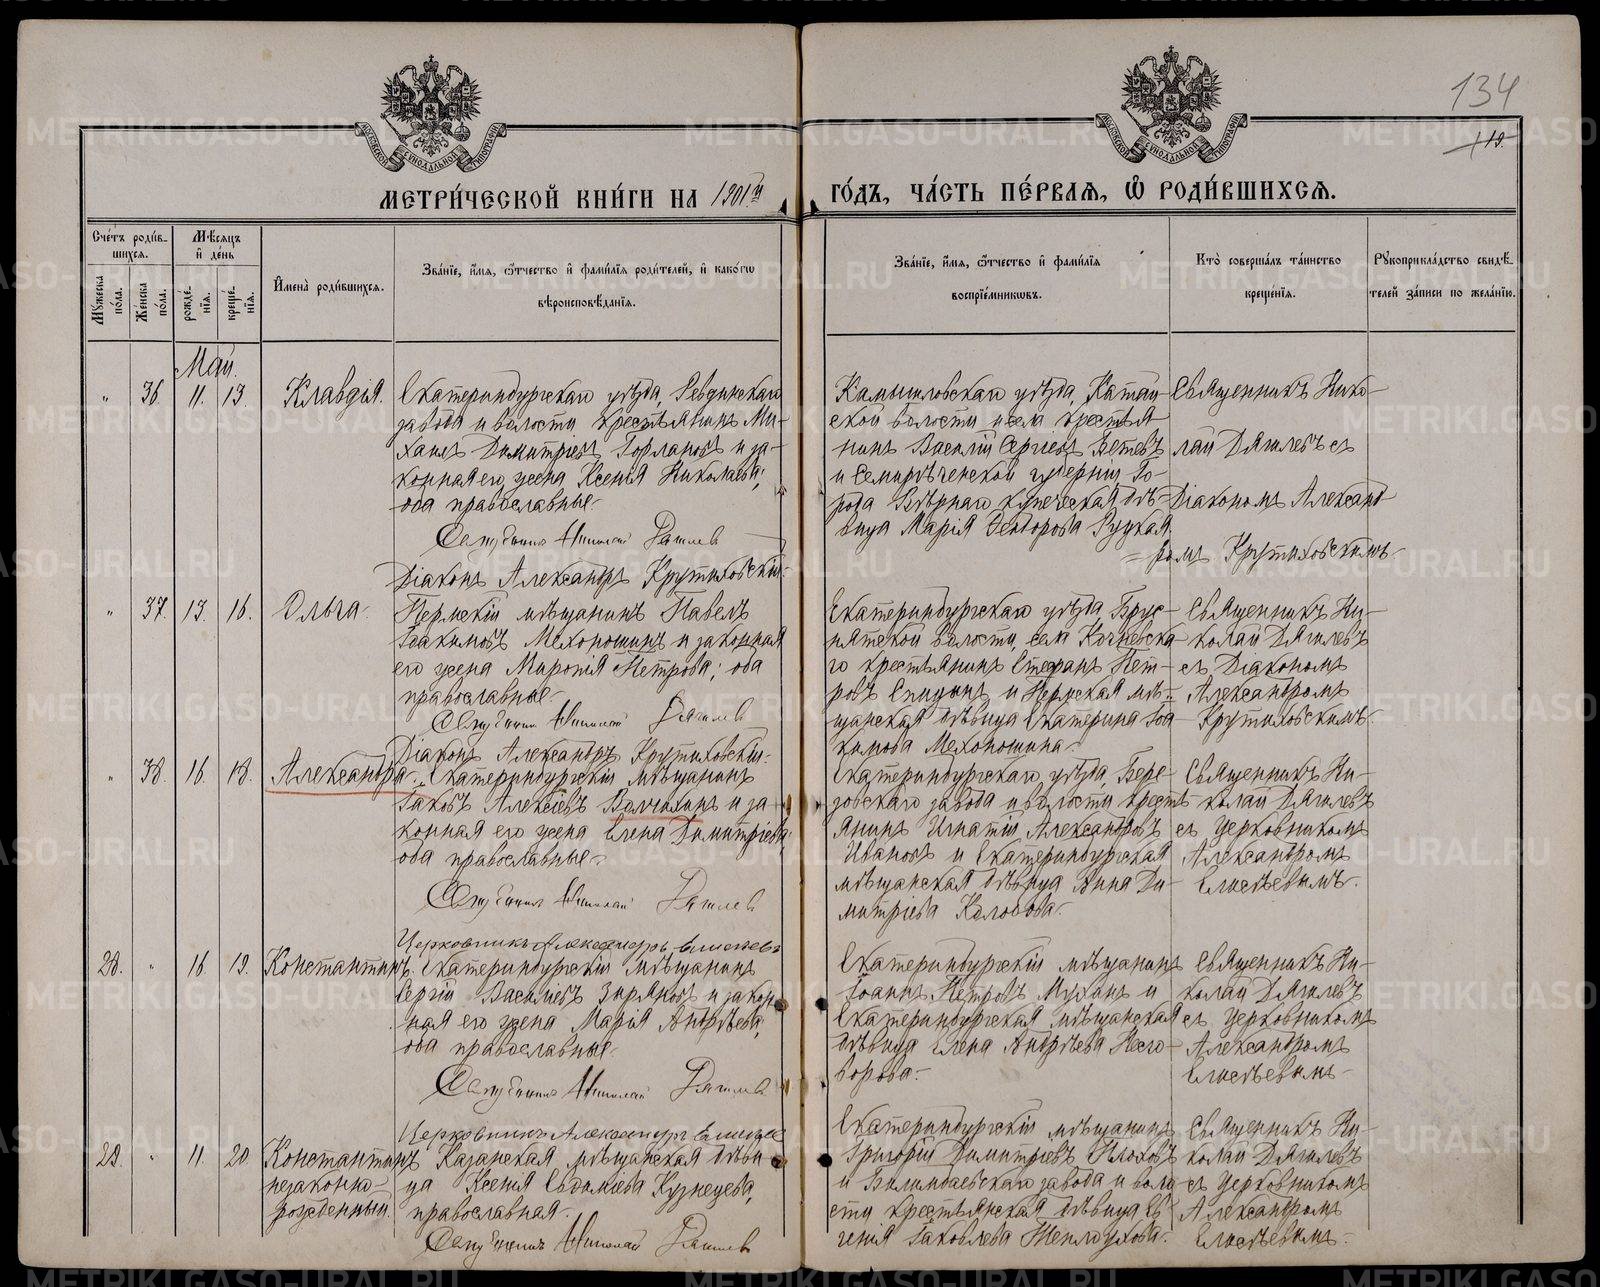 134
119.
МЕТРИЧЕСКОЙ КНИГИ НА 1901й ГОДЪ, ЧАСТЬ ПЕРВАЯ, Ѡ РОДИВШИХСЯ.
Счетъ родив-
шихся.
Мѣсяцъ
и день
Мужеска
пола.
Женска
пола.
рожде-
нія.
креще-
нія.
Имена родившихся.
Званіе, имя, ѿтчество и фамилія родителей, и какогѡ
вѣроисповѣданія.
Званіе, имя, ѿтчество и фамилія
воспріемникѡвъ.
Кто совершалъ таинство
крещенія.
Рукоприкладство свидѣ-
телей записи по желанію.
Май.
" 36. 11. 13. Клавдія.
Екатеринбургскаго уѣзда, Ревдинскаго
завода и волости крестьянинъ Ми-
хаилъ Димитріевъ Горлановъ и за-
конная его жена Ксенія Николаева;
оба православные.
Священникъ Николай Дягилевъ
Діаконъ Александръ Крутиховскій.
Камышловскаго уѣзда,
ской волости и села крестья
нинъ Василій Сергіевъ
и Семирѣченской губерніи, го-
рода Вѣрнаго купеческая дѣ-
вица Марія Ѳеодорова
Священникъ Нико-
лай Дягилевъ съ
Діакономъ Александ-
ромъ Крутиховскимъ.
" 37. 13. 16. Ольга.
Пермскій мѣщанинъ Павелъ
Іоакимовъ Мехоношинъ и законная
его жена Миропія Петрова; оба
православные.
Священникъ Николай Дягилевъ
Діаконъ Александръ Крутиховскій.
Екатеринбургскаго уѣзда Брус-
нятской волости, села Кочневска-
го крестьянинъ Стефанъ Пет-
ровъ Спицынъ и Пермская мѣ-
щанская дѣвица Екатерина Іоа-
кимова Мехоношина.
Священникъ Ни-
колай Дягилевъ
съ Діакономъ
Александромъ
Крутиховскимъ.
" 38. 16. 18. Александра.
Екатеринбургскій мѣщанинъ
Іаковъ Алексіевъ Волчихинъ и за-
конная его жена Елена Димитріева;
оба православные.
Священникъ Николай Дягилевъ
Церковникъ Александръ Елисѣевъ
Екатеринбургскаго уѣзда Бере-
зовскаго завода и волости кресть-
янинъ Игнатій Александровъ
Ивановъ и Екатеринбургская
мѣщанская дѣвица Анна Ди-
митріева Колобова.
Священникъ Ни-
колай Дягилевъ
съ церковникомъ
Александромъ
Елисѣевымъ.
28. " 16. 19. Константинъ.
Екатеринбургскій мѣщанинъ
Сергій Василіевъ Зыряновъ и закон-
ная его жена Марія Андрѣева;
оба православные.
Священникъ Николай Дягилевъ
Церковникъ Александръ Елисѣевъ
Екатеринбургскій мѣщанинъ
Іоаннъ Петровъ Мухинъ и
Екатеринбургская мѣщанская
дѣвица Елена Андрѣева Него-
ворова.
Священникъ Ни-
колай Дягилевъ
съ церковникомъ
Александромъ
Елисѣевымъ.
29. " 11. 20. Константинъ
незаконно-
рожденный.
Казанская мѣщанская дѣви-
ца Ксенія Евдокіева Кузнецева,
православная.
Священникъ Николай Дягилевъ
Екатеринбургскій мѣщанинъ
Григорій Димитріевъ Плоховъ
и Билимбаевскаго завода и воло-
сти крестьянская дѣвица Ев-
генія Іаковлева
Священникъ Ни-
колай Дягилевъ
съ церковникомъ
Александромъ
Елисѣевымъ.